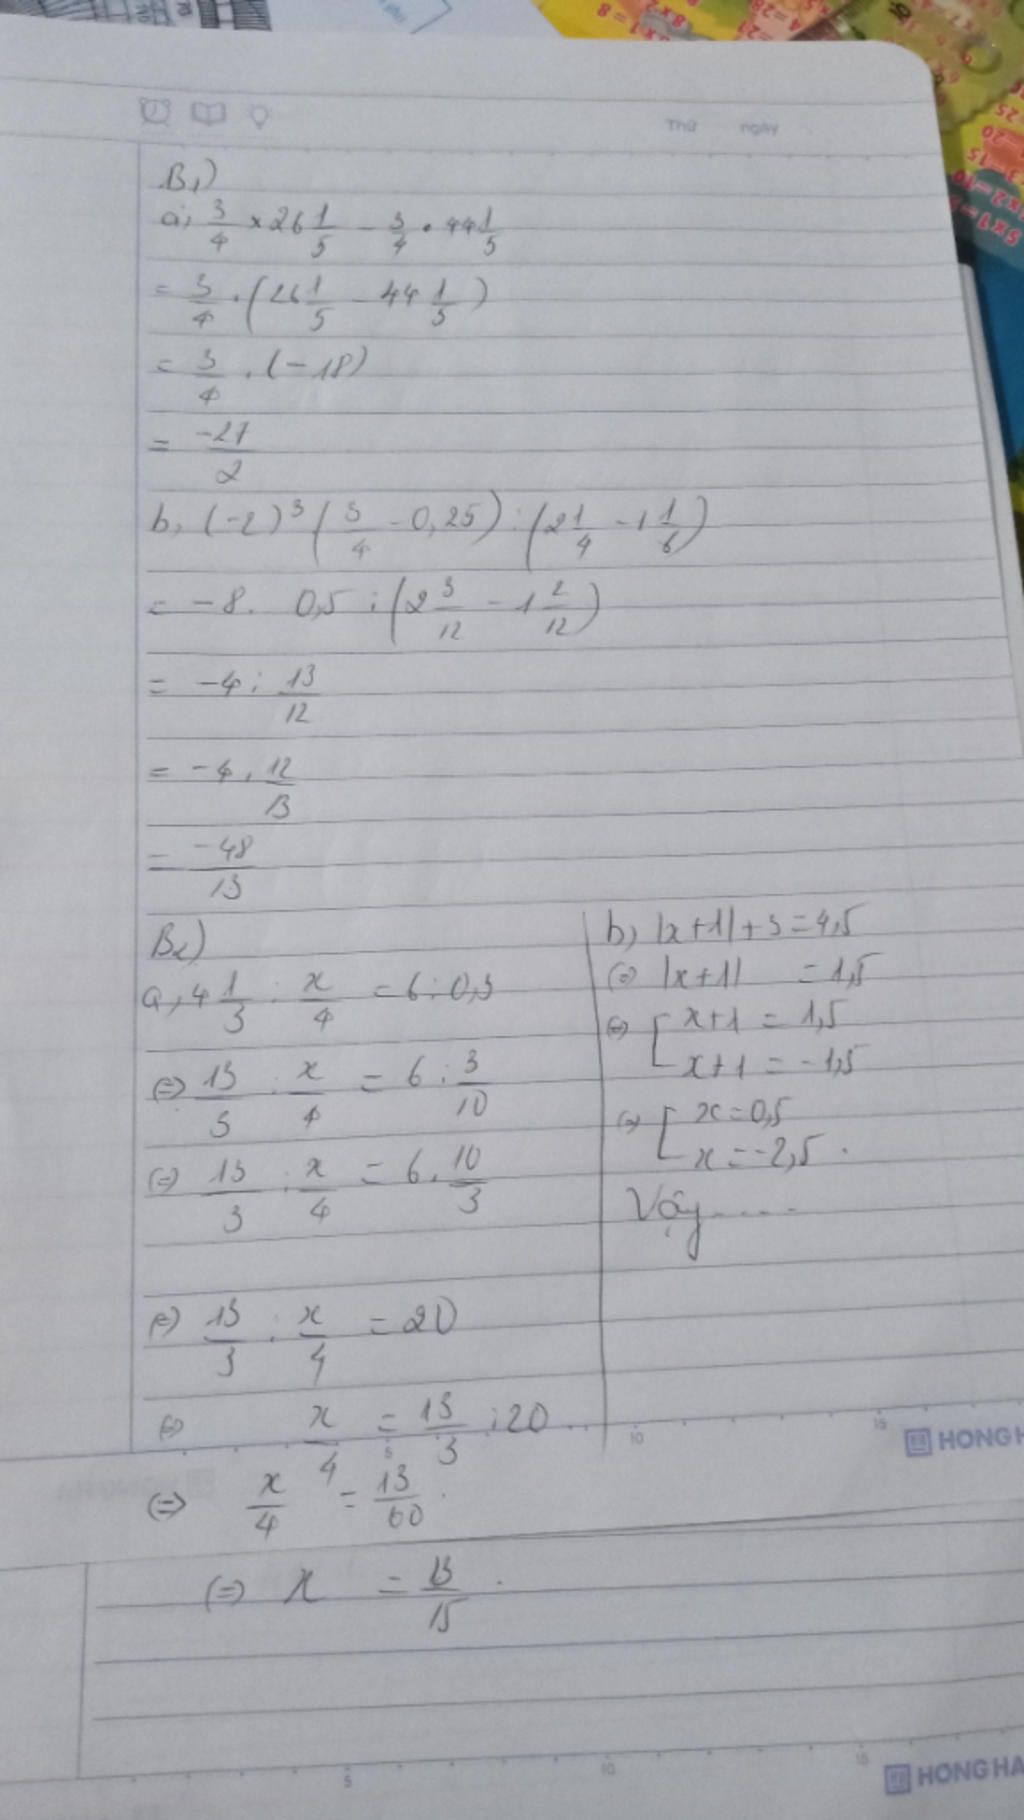 Thứ ngày
B₁)
a, 3/4 × 26 1/5 - 3/4 . 44 1/5
= 3/4 . (26 1/5 - 44 1/5)
= 3/4 . (-18)
= -27/2
b, (-2)³ (3/4 - 0,25) : (2 1/4 - 1 1/6)
= -8. 0,5 : (2 3/12 - 1 2/12)
= -4 : 13/12
= -4 . 12/13
= -48/13
B₂)
a, 4 1/3 : x/4 = 6 : 0,3
(=) 13/3 : x/4 = 6 : 3/10
(=) 13/3 : x/4 = 6 . 10/3
(=) 13/3 : x/4 = 20
(=) x/4 = 13/3 : 20
(=) x/4 = 13/60
(=) x = 13/15 .
b, |x+1| + 3 = 4,5
(=) |x+1| = 1,5
(=) [ x+1 = 1,5
x+1 = -1,5
(=) [ x = 0,5
x = -2,5 .
Vậy....
5 10 15
HONG H
5 10 15
HONG HA